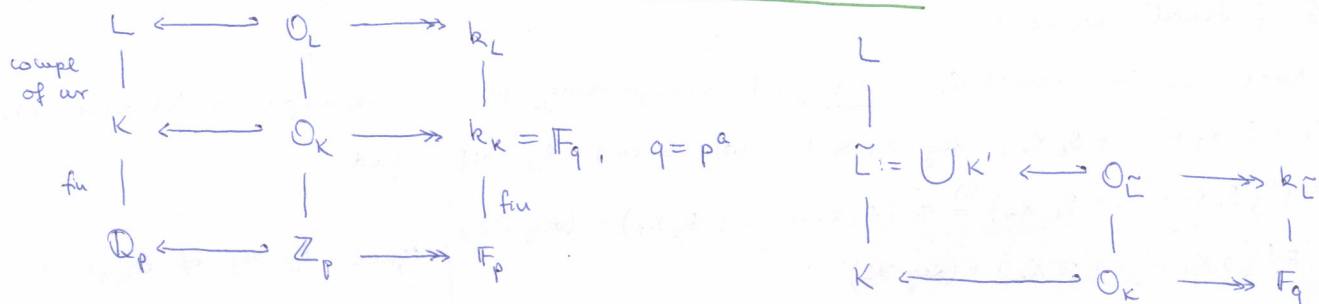 L ⟵ O_L ⟶ k_L
compl
of ur
K ⟵ O_K ⟶ k_K = F_q , q = p^a
fin
fin
Q_p ⟵ Z_p ⟶ F_p
L
L̃ := ⋃ K' ⟵ O_L̃ ⟶ k_L̃
K ⟵ O_K ⟶ F_q